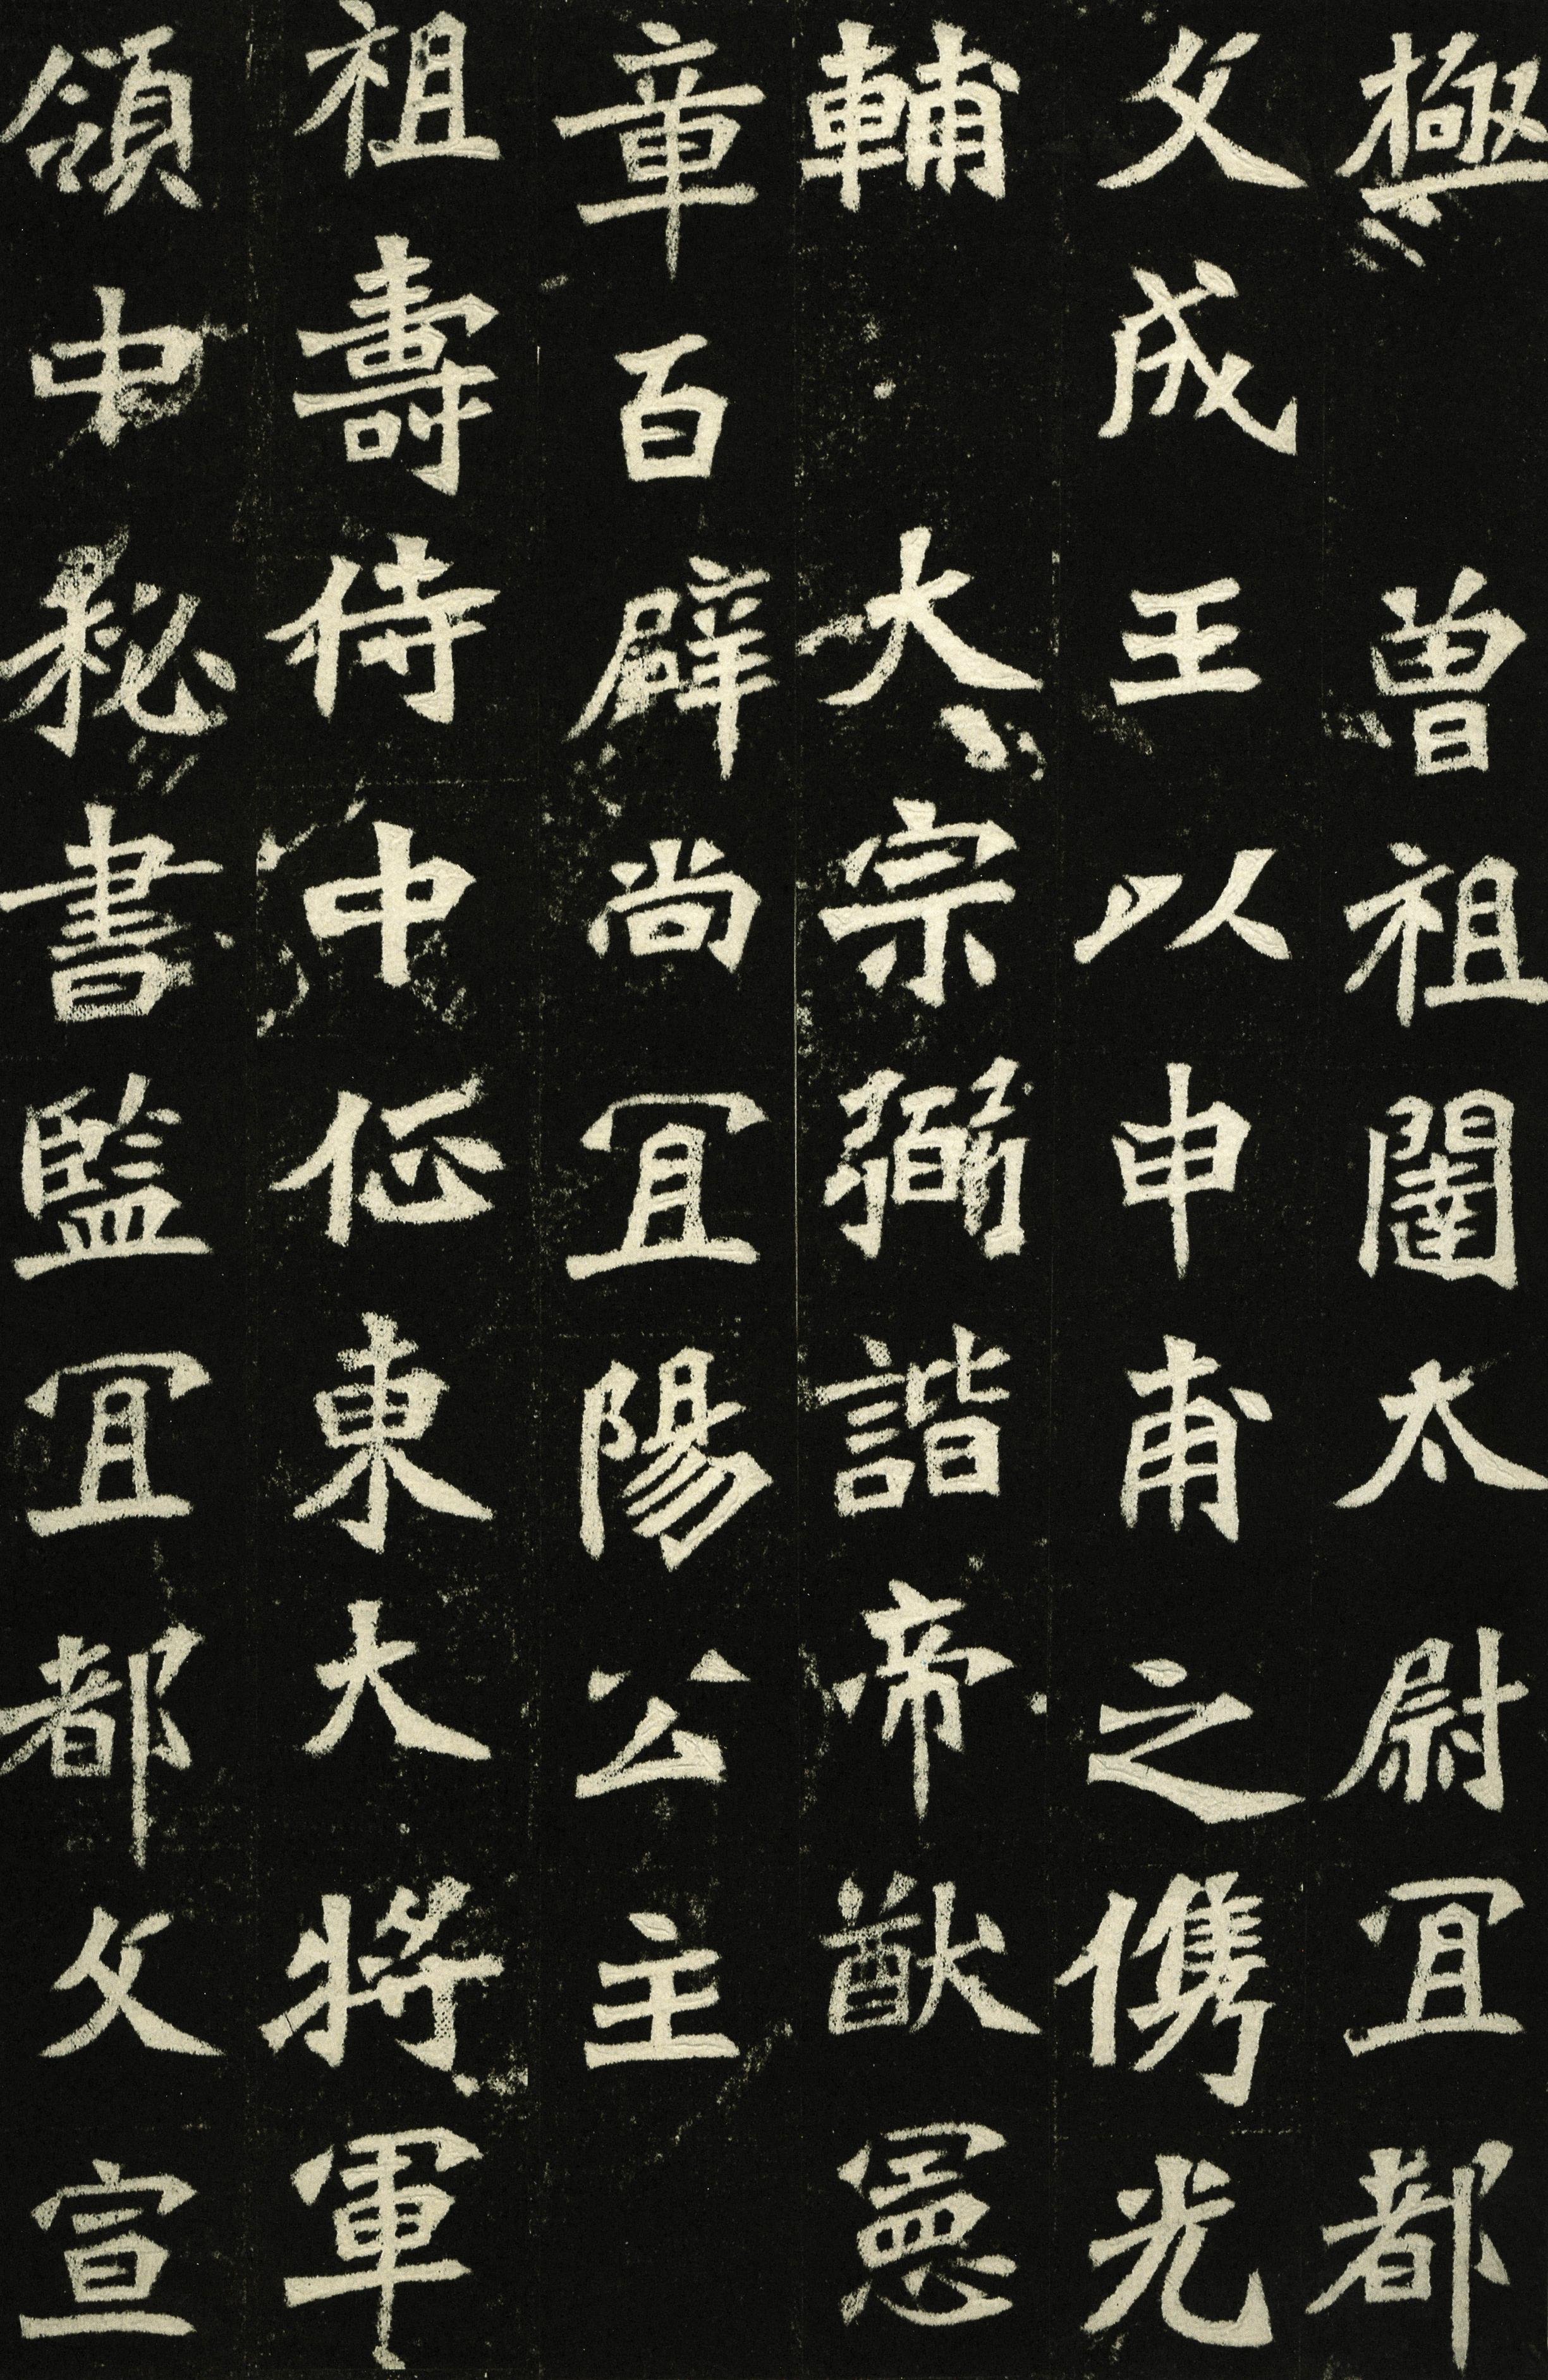 極 曾祖闥太尉宜都
文成王以申甫之儁光
輔 大宗弼諧帝猷憲
章百辟尚宜陽公主
祖壽侍中征東大將軍
領中秘書監宜都文宣